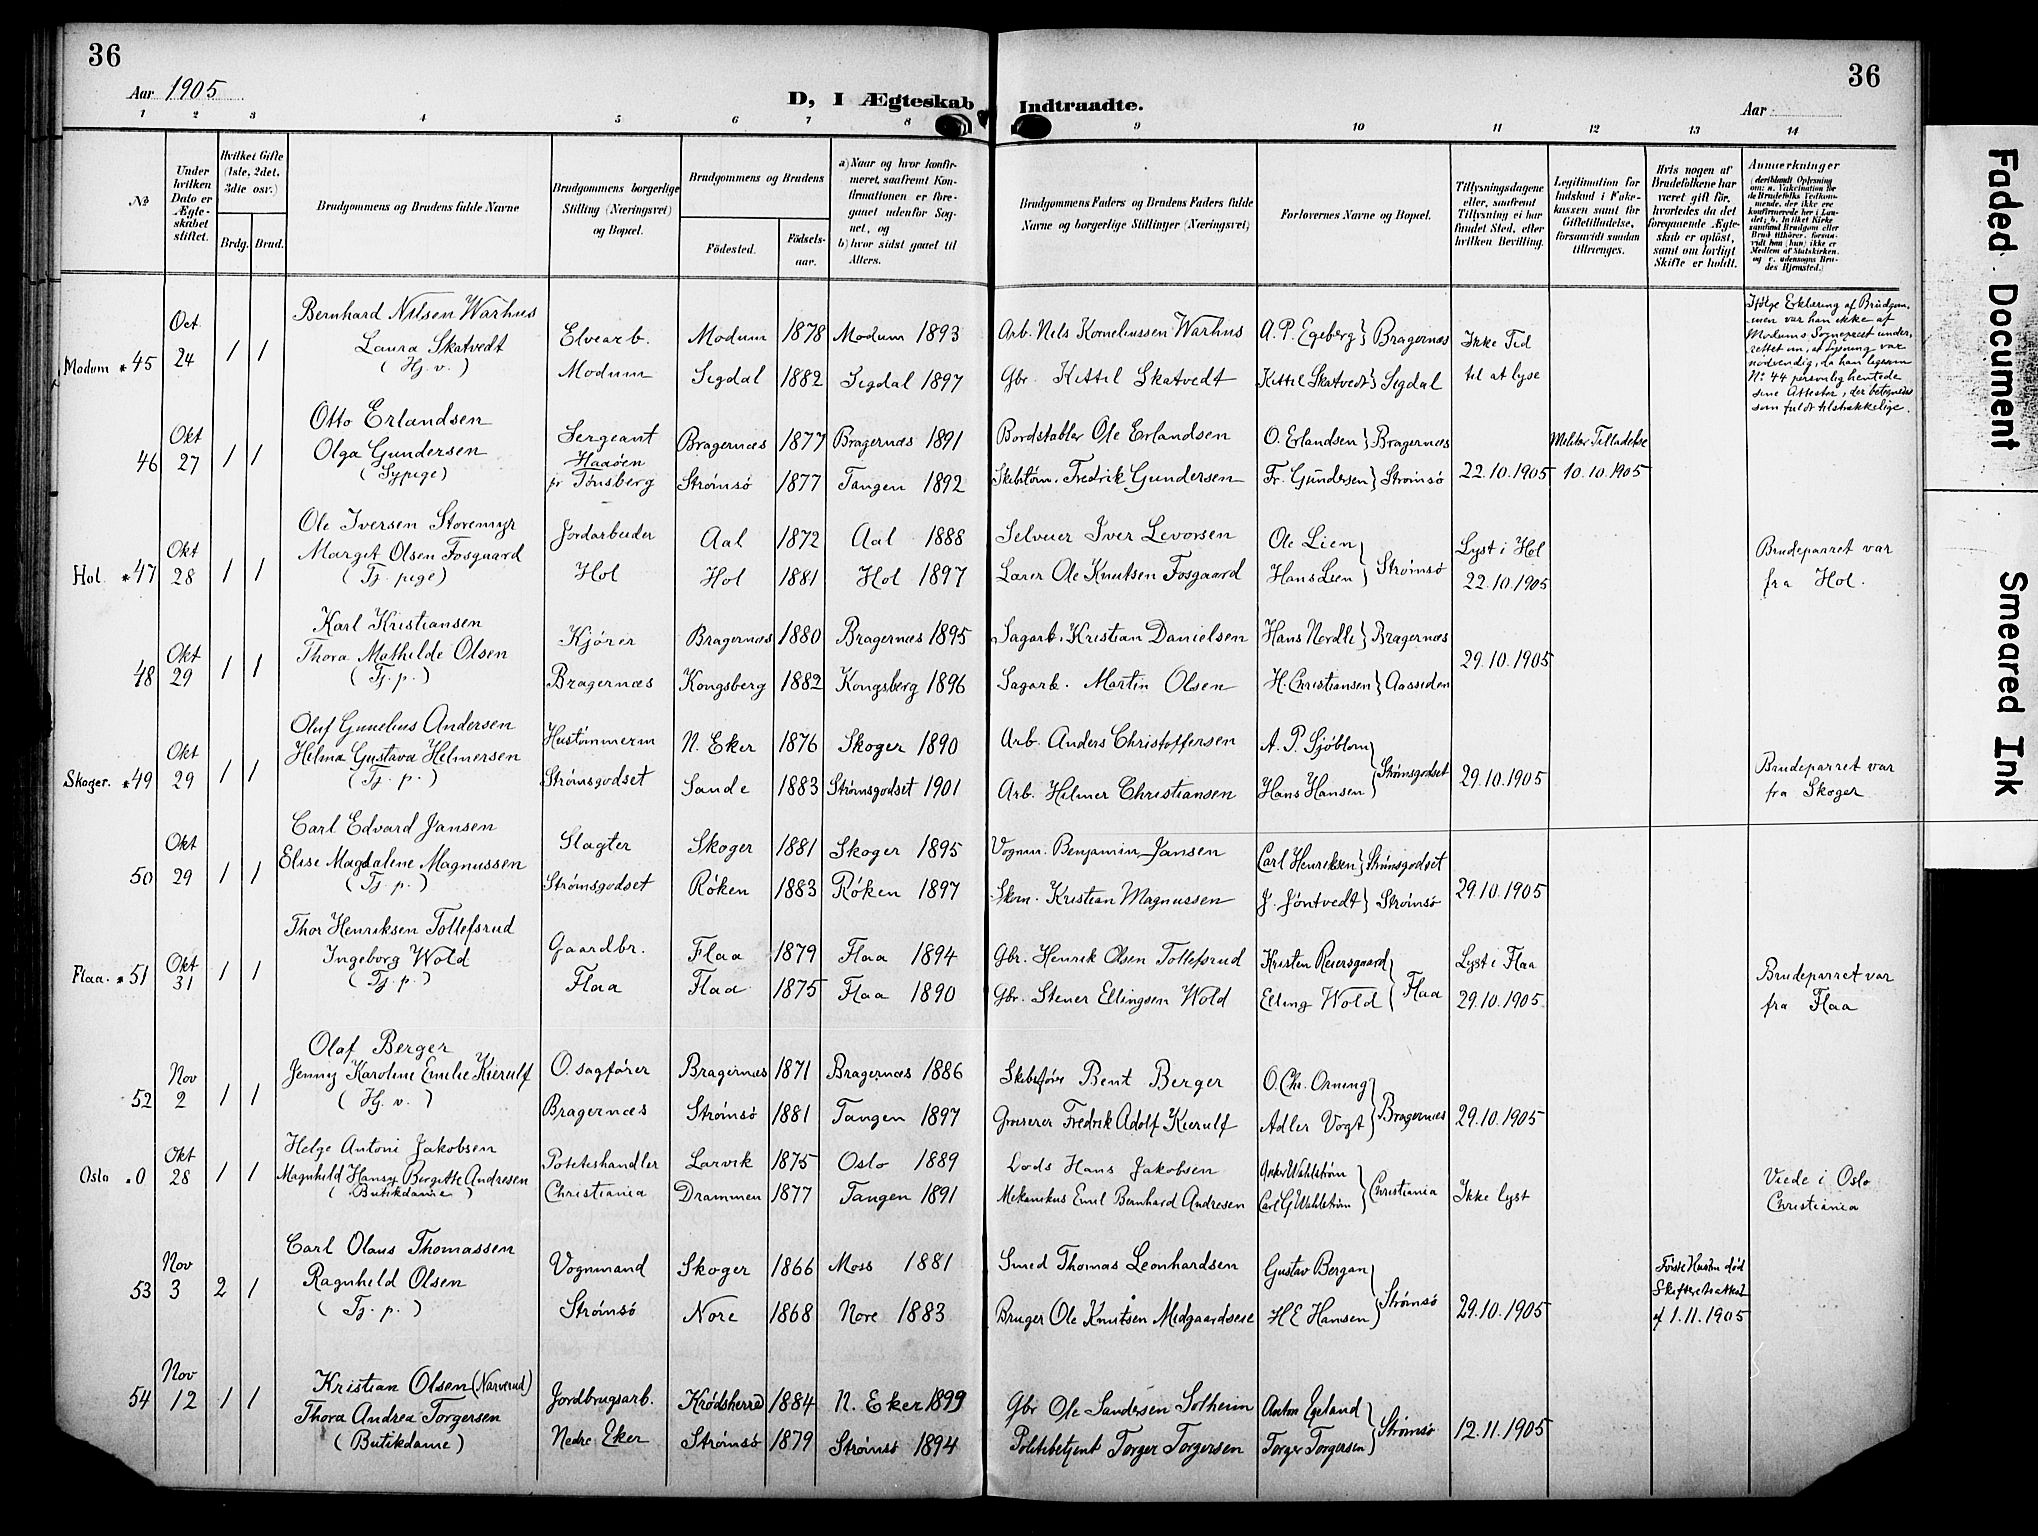 36
36
Aar 1905
D, I Ægteskab Indtraadte.
Aar
1 2 3 4 5 6 7 8 9 10 11 12 13 14
№
Under hvilken Dato er Ægteskabet stiftet.
Hvilket Gifte (1ste, 2det, 3die osv.)
Brdg. Brud.
Brudgommens og Brudens fulde Navne
Brudgommens borgerlige Stilling (Næringsvei) og Bopæl.
Brudgommens og Brudens
Fødested. Fødsels-aar.
a) Naar og hvor konfirmeret, saafremt Konfirmationen er foregaaet udenfor Sognet, og
b) hvor sidst gaaet til Alters.
Brudgommens Faders og Brudens Faders fulde Navne og borgerlige Stillinger (Næringsvei)
Forlovernes Navne og Bopæl.
Tillysningsdagene eller, saafremt Tillysning ei har fundet Sted, efter hvilken Bevilling.
Legitimation for Indskud i Enkekassen samt for Giftetilladelse, forsaavidt saadan tiltrænges.
Hvis nogen af Brudefolkene har været gift før, hvorledes da det foregaaende Ægteskab er opløst, samt om lovligt Skifte er holdt.
Anmærkninger
Modum * 45 Oct 24 1 1 Bernhard Nilsen Warhus Elvearb. Modum 1878 Modum 1893 Arb. Nils Korneliussen Warhus A. P. Egeberg } Bragernæs Ikke Tid
Laura Skatvedt (Hj. v.) Modum Sigdal 1882 Sigdal 1897 Gbr. Kittil Skatvedt Kittil Skatvedt } Sigdal til at lyse
Ifølge Erklæring af Brudgom-
men var han ikke af
Modums Sogneprest under-
rettet om, at Lysning var
nødvendig, da han ligesom
No 44 personlig hentede
sine Attester, der betegnedes
som fuldt tilstrækkelige.
46 Okt 27 1 1 Otto Erlandsen Sergeant Bragernæs 1877 Bragernæs 1891 Bordstabler Ole Erlandsen O. Erlandsen } Bragernæs Militær Tilladelse
Olga Gundersen (Sypige) Haaøen pr Tønsberg Strømsø 1877 Tangen 1892 Skibstøm. Fredrik Gundersen Fr. Gundersen } Strømsø 22.10.1905 10.10.1905
Hol * 47 Okt 28 1 1 Ole Iversen Storemyr Jordarbeider Aal 1872 Aal 1888 Selveier Iver Levorsen Ole Lien Lyst i Hol Brudeparret var
Margit Olsen Fosgaard (Tj. pige) Hol Hol 1881 Hol 1897 Lærer Ole Knutsen Fosgaard Hans Lien } Strømsø 22.10.1905 fra Hol.
48 Okt 29 1 1 Karl Kristiansen Kjører Bragernæs 1880 Bragernæs 1895 Sagarb. Kristian Danielsen Hans Nordli } Bragernæs
Thora Mathilde Olsen (Tj. p.) Bragernæs Kongsberg 1882 Kongsberg 1896 Sagarb. Martin Olsen H. Christiansen } Aassiden 29.10.1905
Skoger. * 49 Okt 29 1 1 Oluf Gunelius Andersen Hustømmerm N. Eker 1876 Skoger 1890 Arb. Anders Christoffersen A. P. Sjøblom
Helma Gustava Helmersen (Tj. p.) Strømsgodset Sande 1883 Strømsgodset 1901 Arb. Helmer Christiansen Hans Hansen } Strømsgodset 29.10.1905 Brudeparret var fra Skoger
50 Okt 29 1 1 Carl Edvard Jansen Slagter Skoger 1881 Skoger 1895 Vognm. Benjamin Jansen Carl Henriksen } Strømsgodset
Elise Magdalene Magnussen (Tj. p.) Strømsgodset Røken 1883 Røken 1897 Skom. Kristian Magnussen J. Jøntvedt } Strømsø 29.10.1905
Flaa. * 51 Okt 31 1 1 Thor Henriksen Tollefsrud Gaardbr. Flaa 1879 Flaa 1894 Gbr. Henrik Olsen Tollefsrud Kristen Reiersgaard Lyst i Flaa Brudeparret var
Ingeborg Wold (Tj. p.) Flaa Flaa 1875 Flaa 1890 Gbr. Stener Ellingsen Wold Elling Wold } Flaa 29.10.1905 fra Flaa
52 Nov 2 1 1 Olaf Berger O. sagfører Bragernæs 1871 Bragernæs 1886 Skibsfører Bent Berger O. Chr. Orning
Jenny Karoline Emilie Kierulf (Hj. v.) Bragernæs Strømsø 1881 Tangen 1897 Grosserer Fredrik Adolf Kierulf Adler Vogt } Bragernæs 29.10.1905
Oslo . 0 Okt 28 1 1 Helge Antoni Jakobsen Potetshandler Larvik 1875 Oslo 1889 Lods Hans Jakobsen Anker Wahlstrøm Viede i Oslo
Magnhild Hansy Bergitte Andresen (Butikdame) Christiania Drammen 1877 Tangen 1891 Mekanikus Emil Bernhard Andresen Carl G Wahlstrøm } Christiania Ikke lyst Christiania
53 Nov 3 2 1 Carl Olaus Thomassen Vognmand Skoger 1866 Moss 1881 Smed Thomas Leonhardsen Gustav Bergan Første Hustru død
Ragnhild Olsen (Tj. p.) Strømsø Nore 1868 Nore 1883 Bruger Ole Knutsen Midgaardseie H E Hansen } Strømsø 29.10.1905 Skifteretsattest af 1.11.1905
54 Nov 12 1 1 Kristian Olsen (Narverud) Jordbrugsarb. Krødsherred 1884 N. Eker 1899 Gbr Ole Sandersen Solheim Anton Egeland
Thora Andrea Torgersen (Butikdame) Nedre Eker Strømsø 1879 Strømsø 1894 Politibetjent Torger Torgersen Torger Torgersen } Strømsø 12.11.1905
Faded Document
Smeared Ink